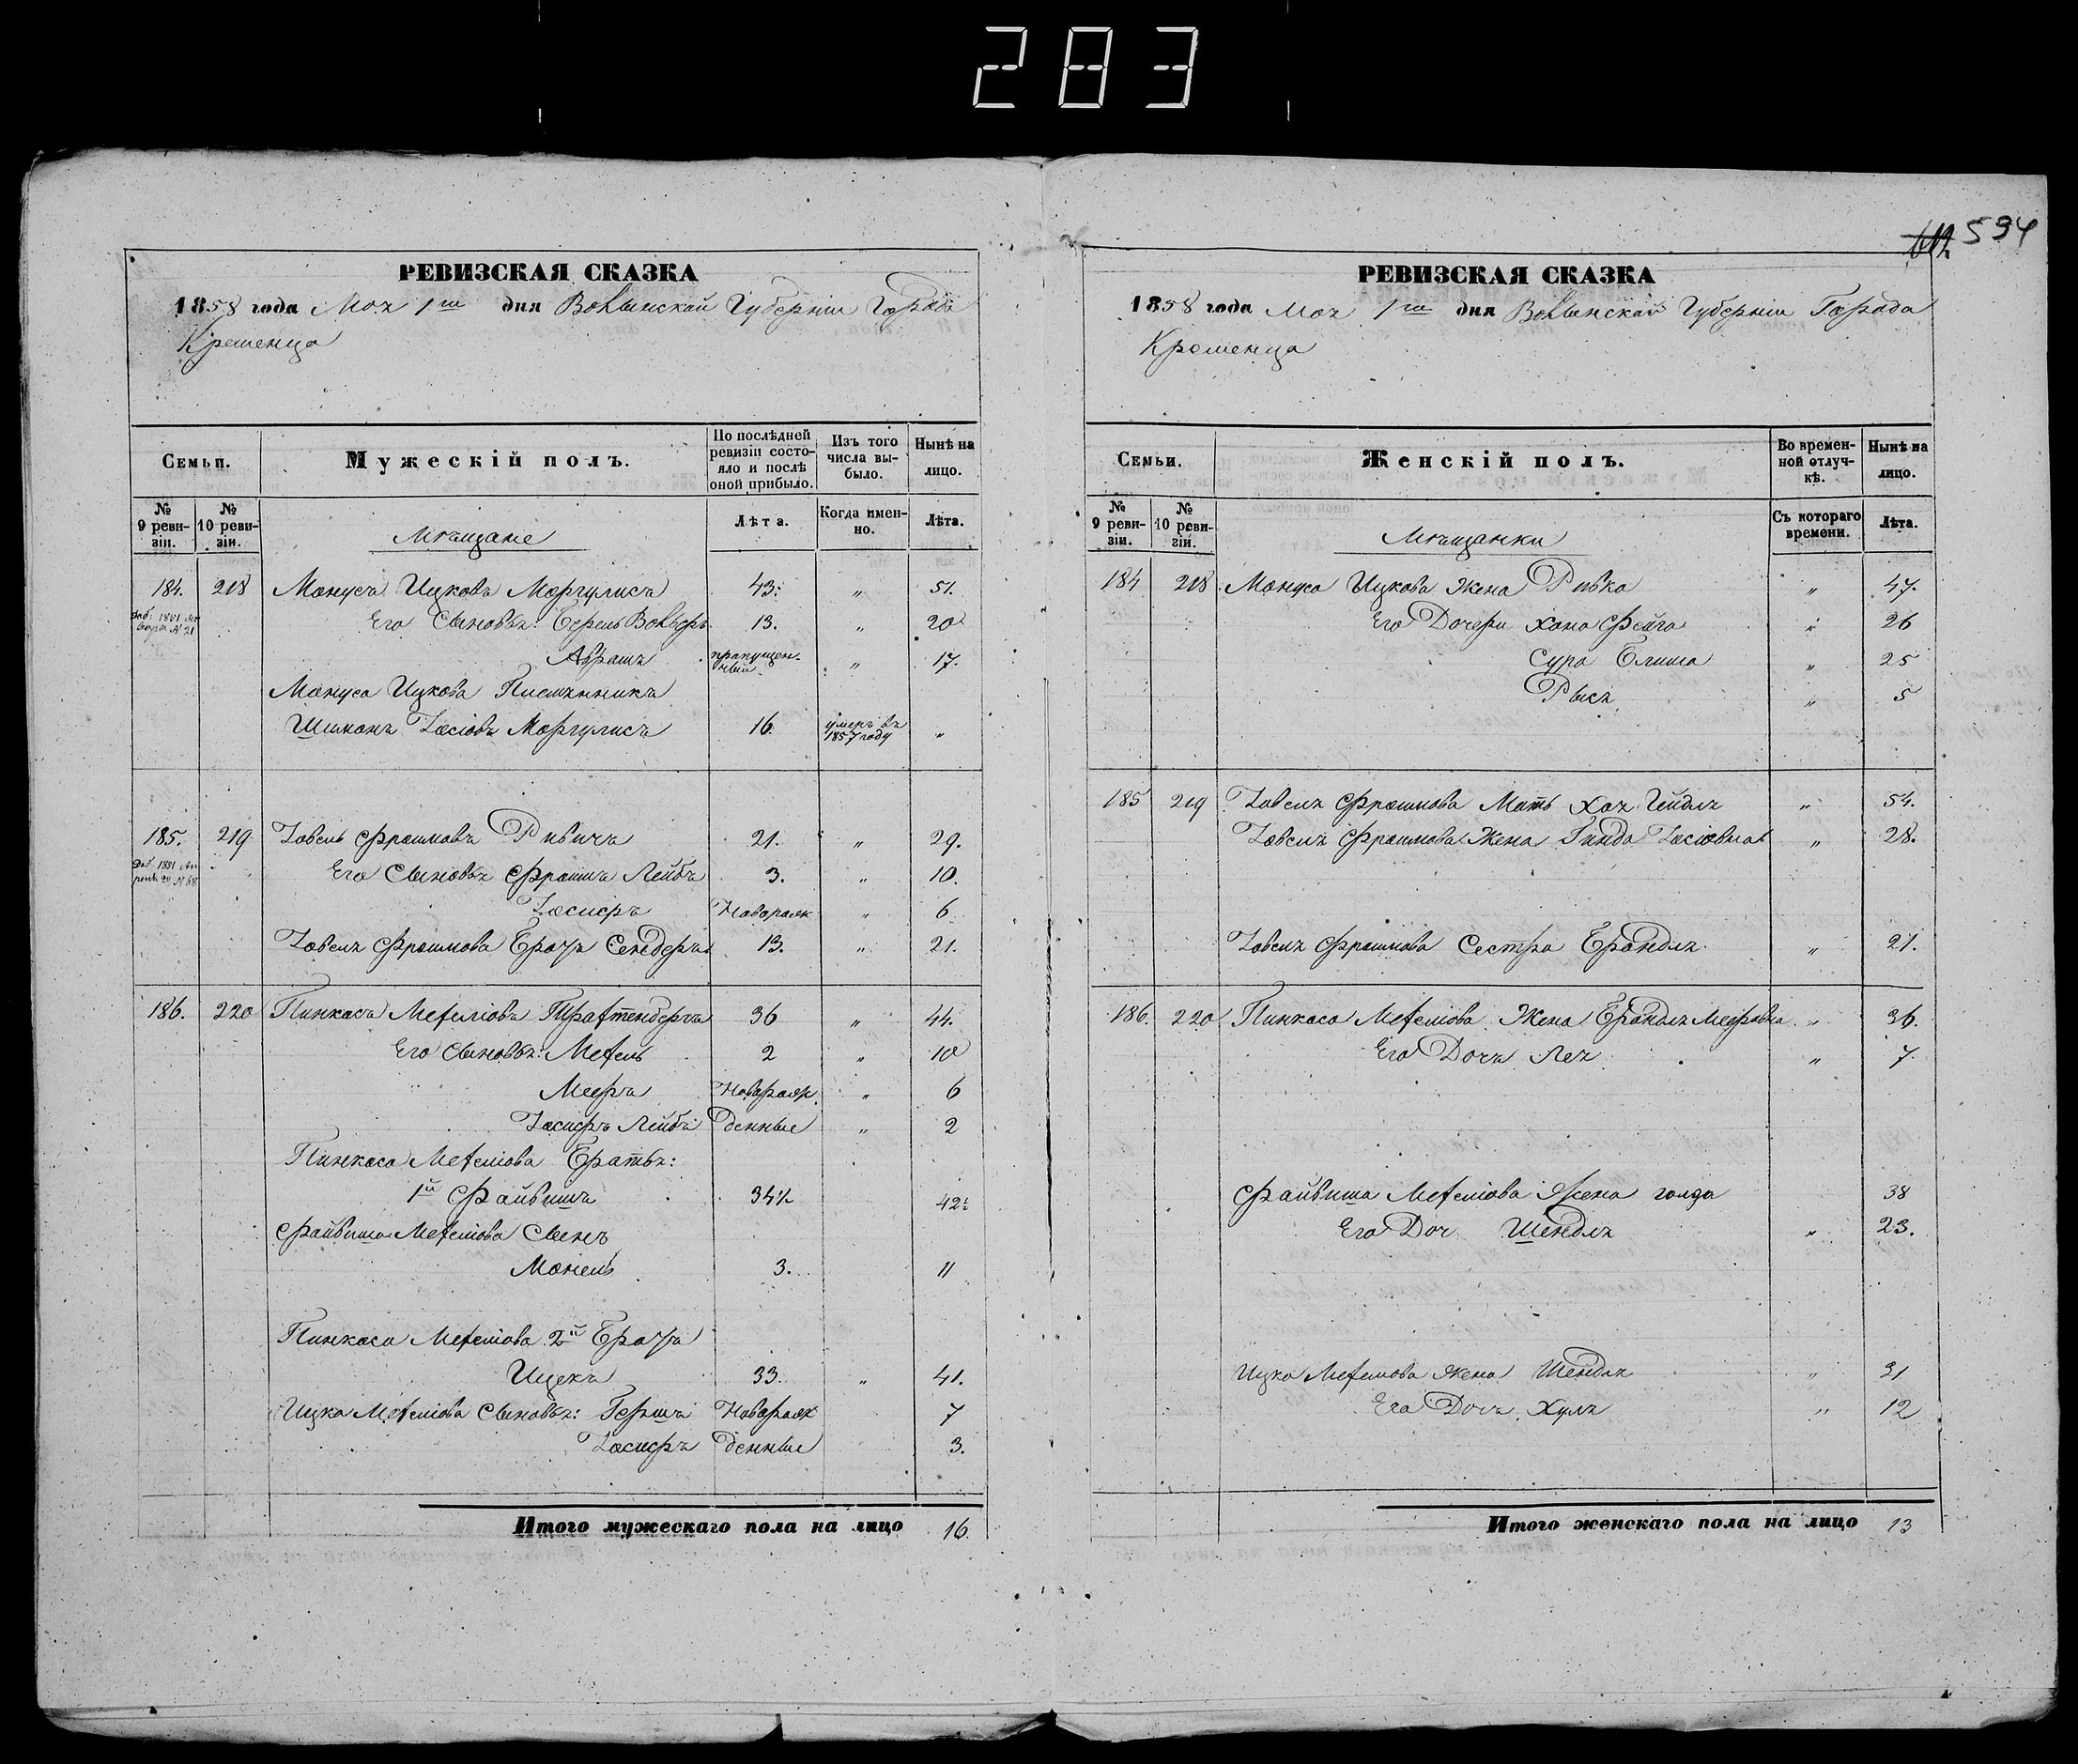 283
594
РЕВИЗСКАЯ СКАЗКА
1858 года Мая 1го дня Волынской Губерніи Города
Кременца
Семьи.
Мужескій полъ.
По послѣдней ревизіи состояло и послѣ оной прибыло.
Изъ того числа выбыло.
Нынѣ на лицо.
№ 9 ревизіи.
№ 10 ревизіи.
Мѣщане
Лѣта.
Когда именно.
Лѣта.
184. 218 Манусъ Ицковъ Моргулисъ 43. „ 51.
Его Сыновья: Берель Вольфъ 13. „ 20
Абрамъ пропущенный „ 17.
Мануса Ицкова Племянникъ
Шимонъ Іосіовъ Моргулисъ 16. умеръ въ 1857 году „
185. 219 Іовель Фроимовъ Ривичъ 21. „ 29.
Его Сыновья Фроимъ Лейбъ 3. „ 10.
Іосифъ Новорож „ 6
Іовеля Фроимова Братъ Сендеръ 13. „ 21.
186. 220 Пинкасъ Мехеліовъ Трахтенбергъ 36 „ 44.
Его Сыновья: Мехель 2 „ 10
Мееръ Новорож „ 6
Іосифъ Лейбъ денные „ 2
Пинкаса Мехеліова Братья:
1й Файвишъ 34½ 42½
Файвиша Мехеліова Сынъ
Маніель 3. 11
Пинкаса Мехеліова 2й Братъ
Ицекъ 33. „ 41.
Ицка Мехеліова Сыновья: Гершъ Новорож 7
Іосифъ денные 3.
Итого мужескаго пола на лицо 16.
РЕВИЗСКАЯ СКАЗКА
1858 года Мая 1го дня Волынской Губерніи Города
Кременца
Семьи.
Женскій полъ.
Во временной отлучкѣ.
Нынѣ на лицо.
№ 9 ревизіи.
№ 10 ревизіи.
Мѣщанки
Съ котораго времени.
Лѣта.
184 218 Мануса Ицкова Жена Ривка „ 47.
Его Дочери Хана Фейга „ 26
Сура Блима „ 25
Рыся „ 5
185 219 Іовеля Фроимова Мать Хая Гейдля „ 54.
Іовеля Фроимова Жена Гинда Іосіовна „ 28.
Іовеля Фроимова Сестра Брандля „ 21.
186. 220 Пинкаса Мехеліова Жена Брандля Мееровна „ 36.
Его Дочь Лея „ 7
Файвиша Мехеліова Жена голда 38
Его Доч Шендля „ 23.
Ицка Мехеліова Жена Шендля „ 31
Его Дочь Хуля „ 12
Итого женскаго пола на лицо 13